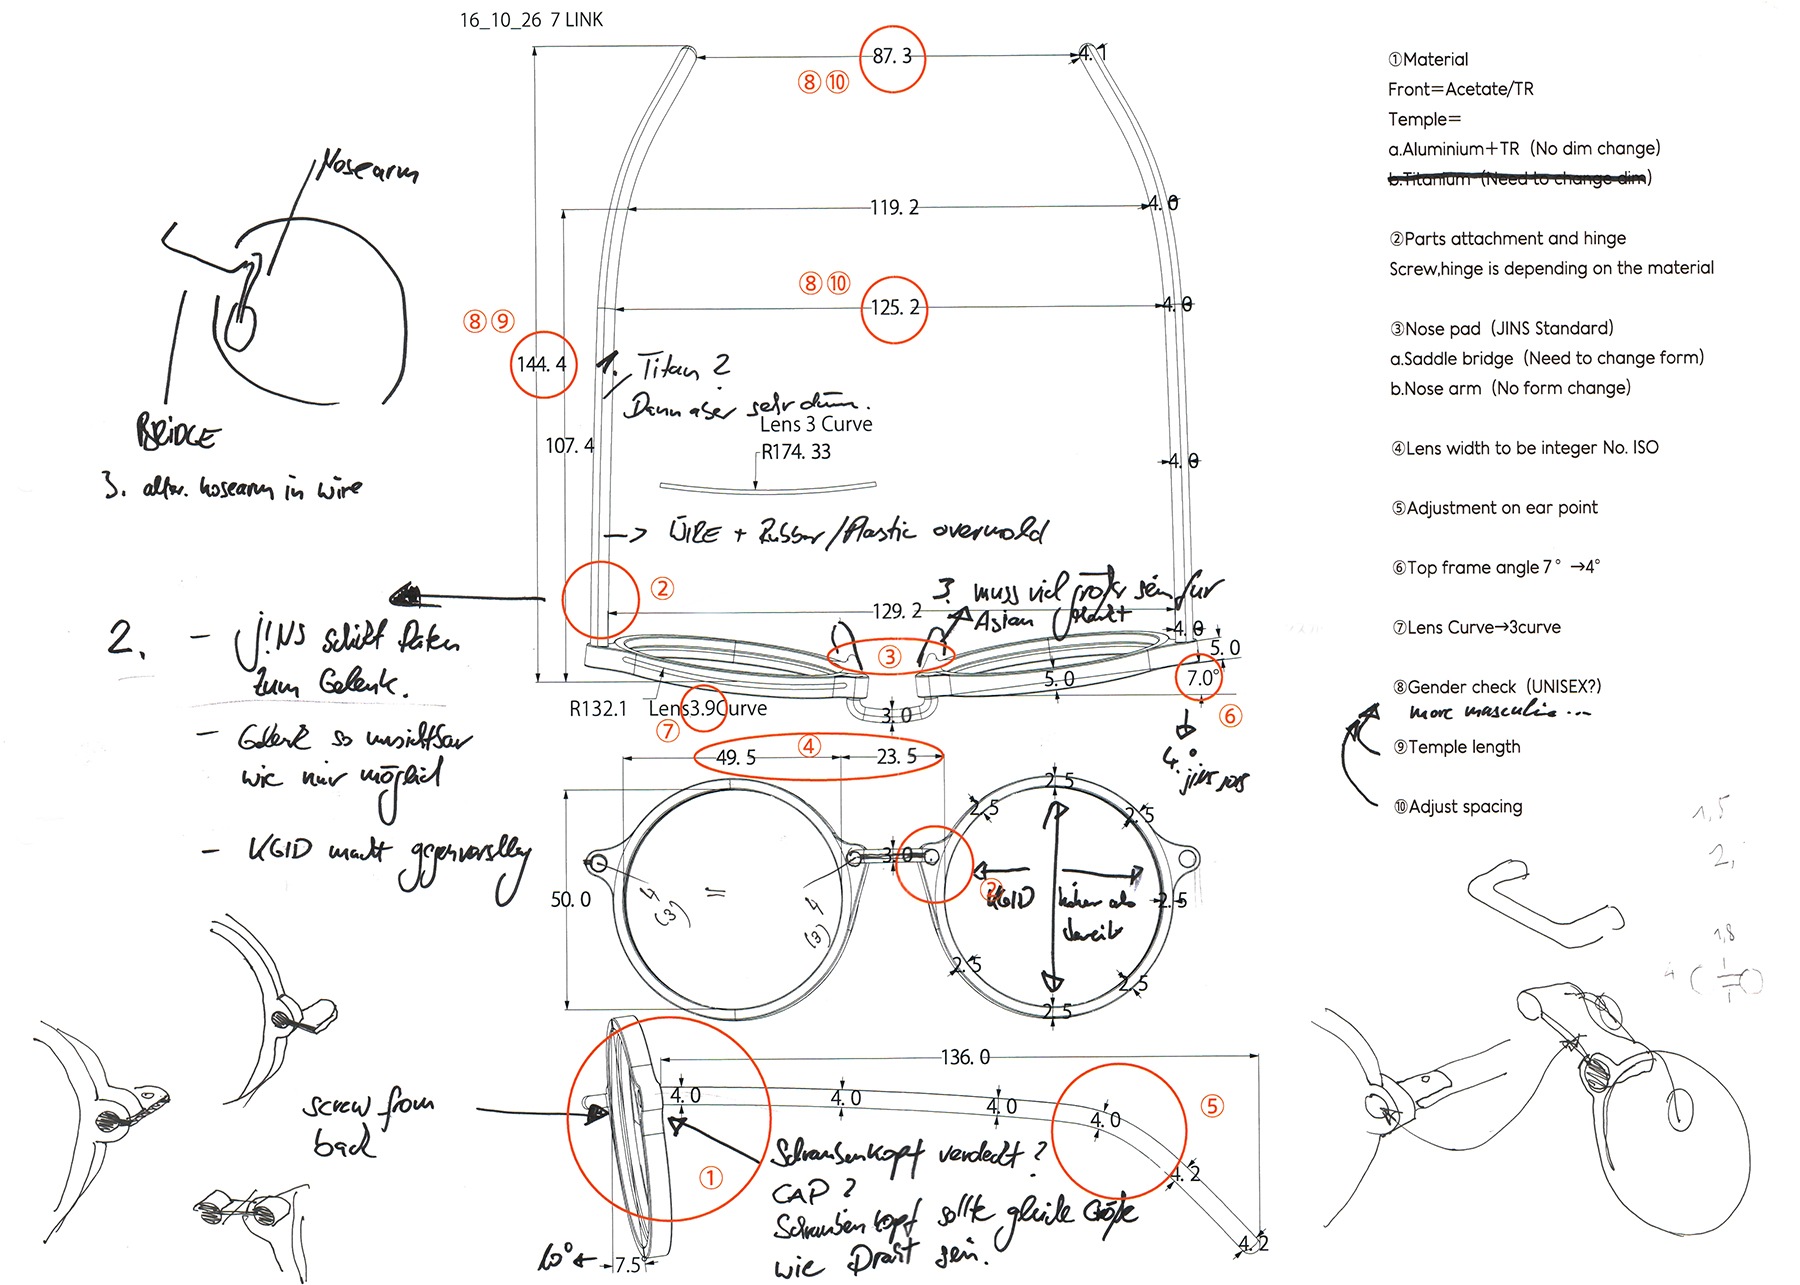 16_10_26 7 LINK
87.3
4.1
⑧⑩
119.2
4.0
⑧⑩
125.2
4.0
⑧⑨
144.4
107.4
1. Titan ?
Dann aber sehr dünn.
Lens 3 Curve
R174.33
4.0
→ WIRE + Rubber/Plastic overmold
②
129.2
3. muss viel größer sein für
Asian
4.0
③
5.0
5.0
7.0°
⑥
R132.1 Lens3.9Curve
⑦
3.0
4.°
④
49.5
23.5
2.5
2.5
2.5
2.5
2.5
2.5
2.5
3.0
②
50.0
4
(3)
=
4
(3)
KGID
höher als
breit
136.0
4.0
4.0
4.0
4.0
4.2
4.2
⑤
①
Schraubenkopf verdeckt ?
CAP ?
Schraubenkopf sollte gleiche Größe
wie Draht sein.
10°
7.5
Nosearm
BRIDGE
3. alter. nosearm in wire
2. - J!NS schikt Daten
zum Gelenk.
- Gelenk so unsichtbar
wie nur möglich
- KGID macht
screw from
back
①Material
Front=Acetate/TR
Temple=
a.Aluminium+TR (No dim change)
b.Titanium (Need to change dim)
②Parts attachment and hinge
Screw,hinge is depending on the material
③Nose pad (JINS Standard)
a.Saddle bridge (Need to change form)
b.Nose arm (No form change)
④Lens width to be integer No. ISO
⑤Adjustment on ear point
⑥Top frame angle 7° →4°
⑦Lens Curve→3curve
⑧Gender check (UNISEX?)
more masculin...
⑨Temple length
⑩Adjust spacing
1,5
2,
1,8